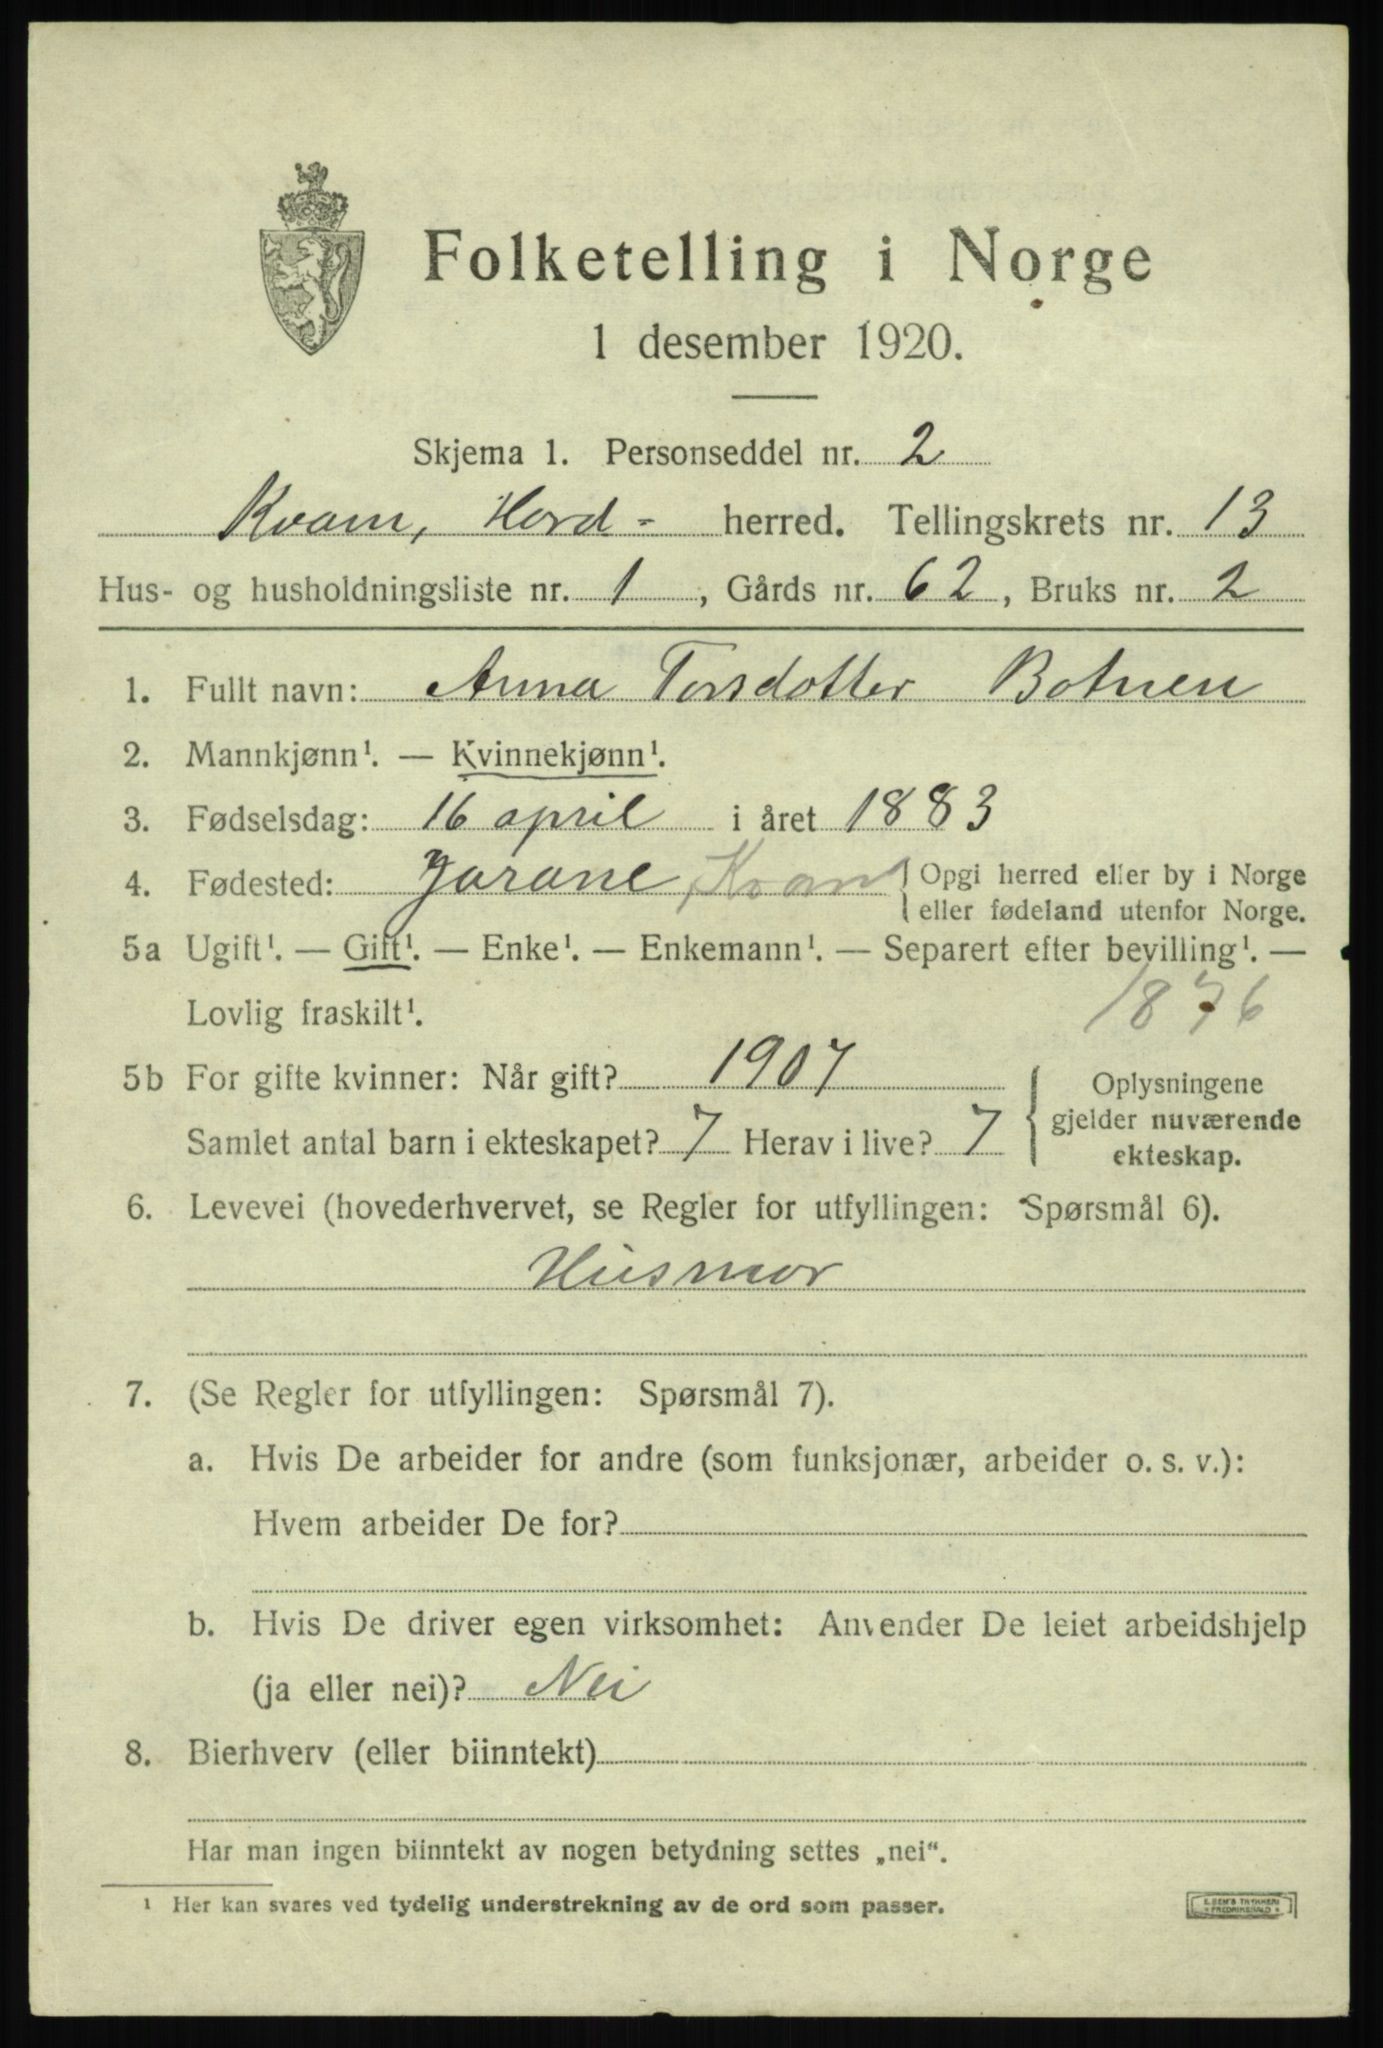 Folketelling i Norge
1 desember 1920.
Skjema 1. Personseddel nr. 2
Kvam, Hord- herred. Tellingskrets nr. 13
Hus- og husholdningsliste nr. 1, Gårds nr. 62, Bruks nr. 2
1. Fullt navn: Anna Torsdotter Botnen
2. Mannkjønn¹. — Kvinnekjønn¹.
3. Fødselsdag: 16 april i året 1883
4. Fødested: Jarane, Kvam { Opgi herred eller by i Norge
eller fødeland utenfor Norge.
5a Ugift¹. — Gift¹. — Enke¹. — Enkemann¹. — Separert efter bevilling¹. —
Lovlig fraskilt¹. 1876
5b For gifte kvinner: Når gift? 1907 { Oplysningene
gjelder nuværende
ekteskap.
Samlet antal barn i ekteskapet? 7 Herav i live? 7
6. Levevei (hovederhvervet, se Regler for utfyllingen: Spørsmål 6).
Husmor
7. (Se Regler for utfyllingen: Spørsmål 7).
a. Hvis De arbeider for andre (som funksjonær, arbeider o. s. v.):
Hvem arbeider De for?
b. Hvis De driver egen virksomhet: Anvender De leiet arbeidshjelp
(ja eller nei)? Nei
8. Bierhverv (eller biinntekt)
Har man ingen biinntekt av nogen betydning settes „nei“.
¹ Her kan svares ved tydelig understrekning av de ord som passer.